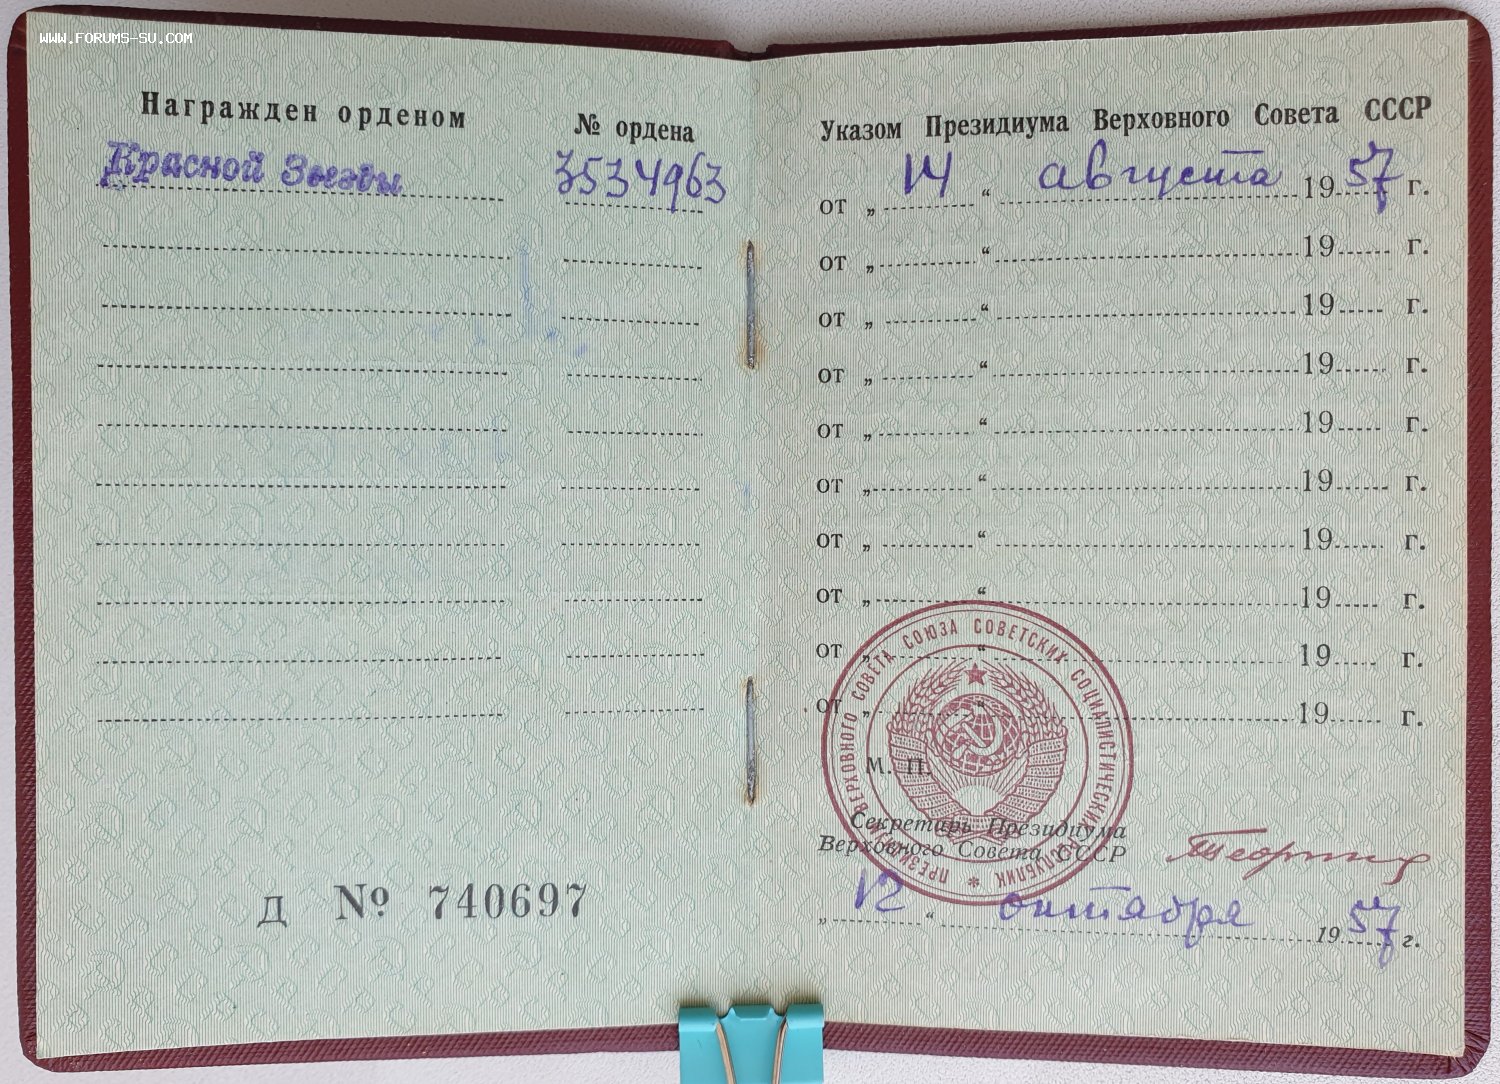 www.forums-su.com
Награжден орденом
№ ордена
Красной Звезды
3534963
Д № 740697
Указом Президиума Верховного Совета СССР
от „ 14 “ августа 19 57 г.
от „ “ 19 г.
от „ “ 19 г.
от „ “ 19 г.
от „ “ 19 г.
от „ “ 19 г.
от „ “ 19 г.
от „ “ 19 г.
от „ “ 19 г.
от „ “ 19 г.
ПРЕЗИДИУМ ВЕРХОВНОГО СОВЕТА СОЮЗА СОВЕТСКИХ СОЦИАЛИСТИЧЕСКИХ РЕСПУБЛИК
М. П.
Секретарь Президиума
Верховного Совета СССР
„ 12 “ октября 19 57 г.